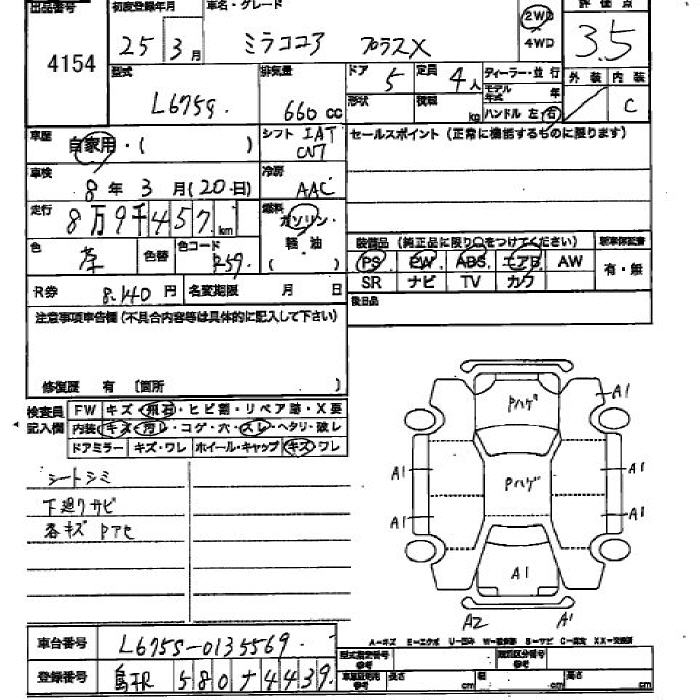 出品番号 初度登録年月 車名・グレード 2WD 評価点
4154 25年 3月 ミラココア プラスX 4WD 3.5
型式 排気量 ドア 5 定員 4人 ディーラー・並行 外装 内装
モデル年式 年
L675S 660cc 形状 積載 kg ハンドル 左・右 C
車歴 自家用・( ) シフト IAT CVT セールスポイント (正常に機能するものに限ります)
車検 8年 3月(20日) 冷房 AAC
走行 8万9千457km 燃料 ガソリン・軽油 ( )
装備品 (純正品に限り○をつけてください) 新車保証書
色 茶 色替 色コード R59 PS PW ABS エアB AW 有・無
R券 8.140円 名変期限 月 日 SR ナビ TV カワ
後日品
注意事項申告欄(不具合内容等は具体的に記入して下さい)
修復歴 有 〔箇所 〕
検査員記入欄 FW キズ・飛石・ヒビ割・リペア跡・X要
内装 キズ・汚レ・コゲ・穴・スレ・ヘタリ・破レ
ドアミラー キズ・ワレ ホイール・キャップ キズ・ワレ
シートシミ
下廻りサビ
各キズ Pアセ
Pハゲ
A1
A1 Pハゲ A1
A1 A1
A1
A2 A1
A=キズ E=エクボ U=凹み W=補修跡 S=サビ C=腐食 XX=交換済
車台番号 L675S-0135569 型式指定番号 参考 類別区分番号 参考
登録番号 島根 580ナ4439 参考 長さ cm 幅 cm 高さ cm